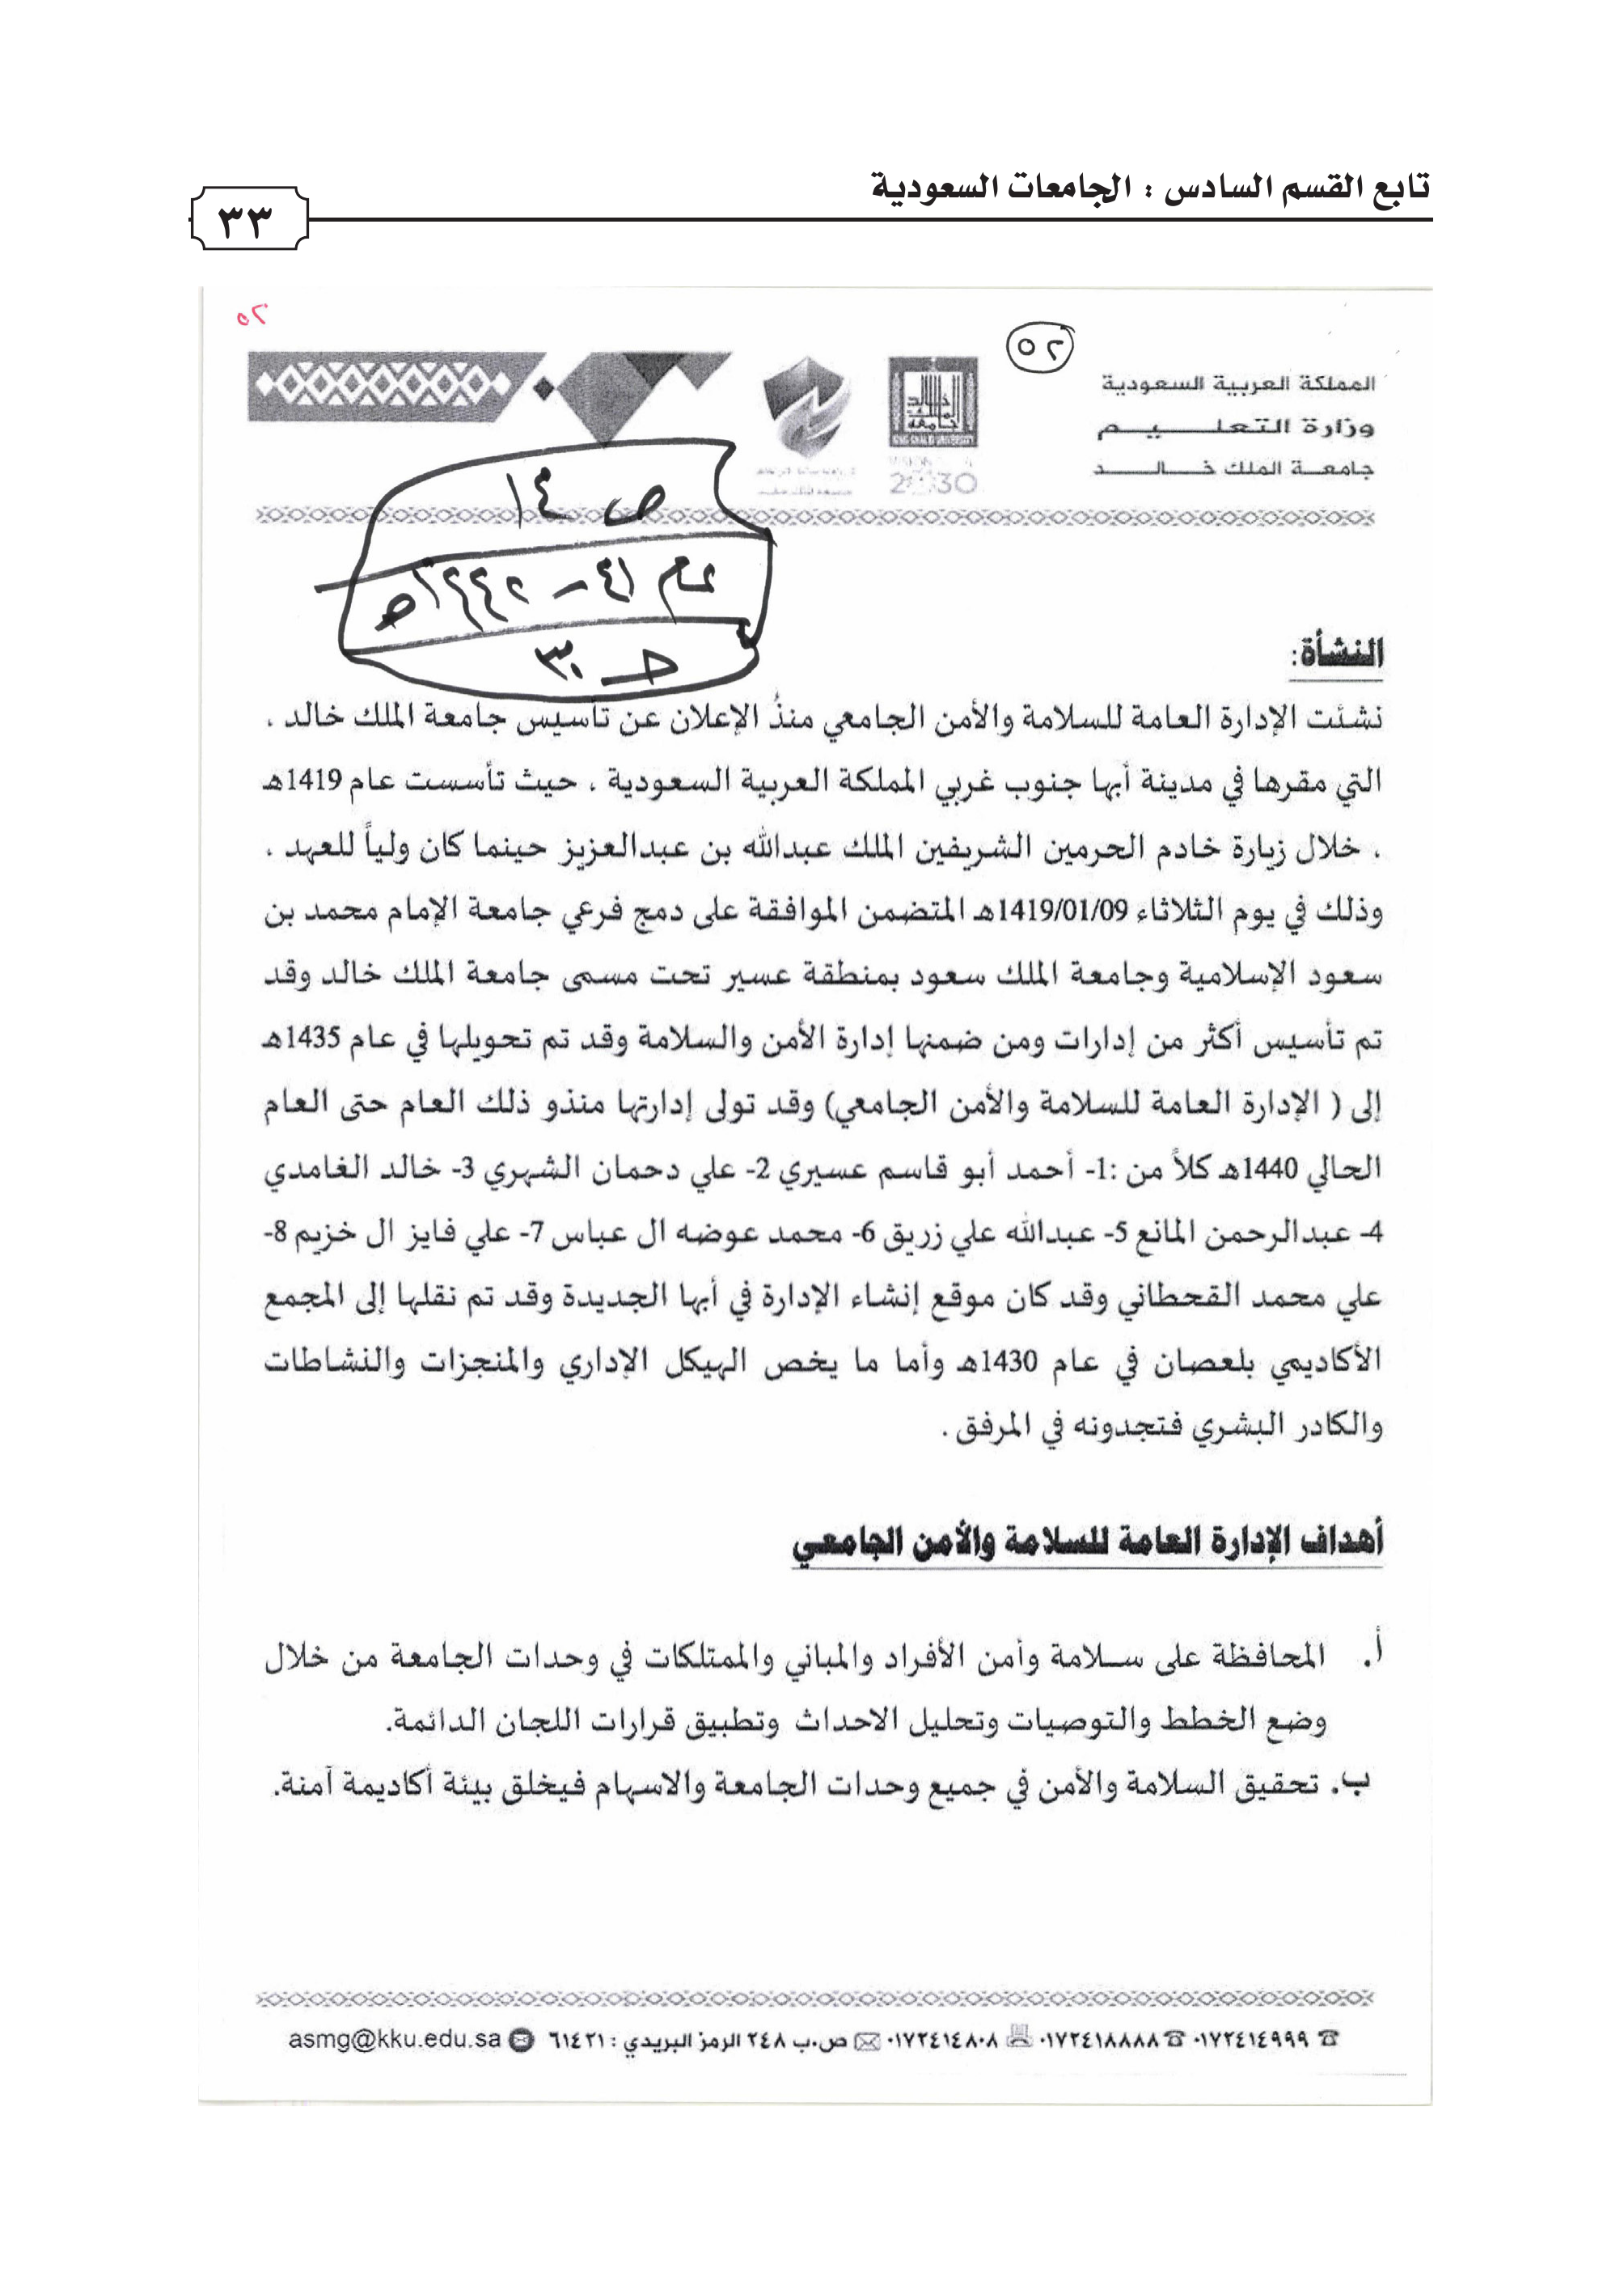 تابع القسم السادس : الجامعات السعودية
٣٣
٥٢
٥٢
المملكة العربية السعودية
وزارة التعليم
جامعة الملك خالد
KING KHALID UNIVERSITY
2030
ص ١٤
عام ٤١ – ١٤٤٢هـ
النشأة:
نشئت الإدارة العامة للسلامة والأمن الجامعي منذُ الإعلان عن تأسيس جامعة الملك خالد ،
التي مقرها في مدينة أبها جنوب غربي المملكة العربية السعودية ، حيث تأسست عام 1419هـ
، خلال زيارة خادم الحرمين الشريفين الملك عبدالله بن عبدالعزيز حينما كان ولياً للعهد ،
وذلك في يوم الثلاثاء 1419/01/09هـ المتضمن الموافقة على دمج فرعي جامعة الإمام محمد بن
سعود الإسلامية وجامعة الملك سعود بمنطقة عسير تحت مسمى جامعة الملك خالد وقد
تم تأسيس أكثر من إدارات ومن ضمنها إدارة الأمن والسلامة وقد تم تحويلها في عام 1435هـ
إلى ( الإدارة العامة للسلامة والأمن الجامعي) وقد تولى إدارتها منذو ذلك العام حتى العام
الحالي 1440هـ كلاً من :1- أحمد أبو قاسم عسيري 2- علي دحمان الشهري 3- خالد الغامدي
4- عبدالرحمن المانع 5- عبدالله علي زريق 6- محمد عوضه ال عباس 7- علي فايز ال خزيم 8-
علي محمد القحطاني وقد كان موقع إنشاء الإدارة في أبها الجديدة وقد تم نقلها إلى المجمع
الأكاديمي بلعصان في عام 1430هـ وأما ما يخص الهيكل الإداري والمنجزات والنشاطات
والكادر البشري فتجدونه في المرفق .
أهداف الإدارة العامة للسلامة والأمن الجامعي
أ. المحافظة على سلامة وأمن الأفراد والمباني والممتلكات في وحدات الجامعة من خلال
وضع الخطط والتوصيات وتحليل الاحداث وتطبيق قرارات اللجان الدائمة.
ب. تحقيق السلامة والأمن في جميع وحدات الجامعة والاسهام فيخلق بيئة أكاديمة آمنة.
٠١٧٢٤١٤٩٩٩ ٠١٧٢٤١٨٨٨٨ ٠١٧٢٤١٤٨٠٨ ص.ب ٢٤٨ الرمز البريدي : ٦١٤٢١ asmg@kku.edu.sa